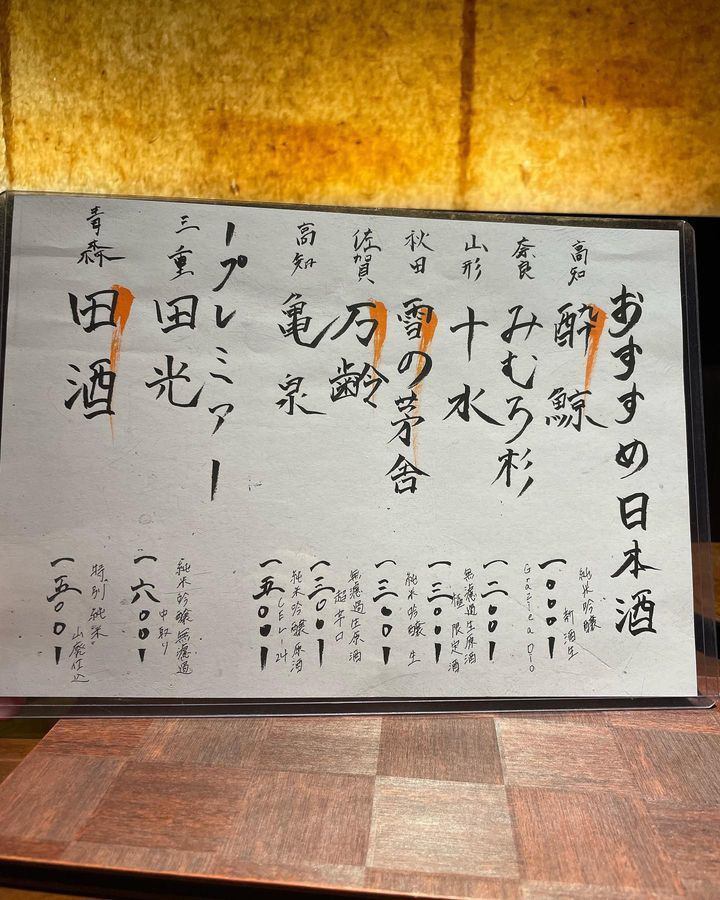 おすすめ日本酒
高知 酔鯨 純米吟醸 新酒生 一〇〇〇ー
奈良 みむろ杉 Grazie a Dio 一二〇〇ー
山形 十水 無濾過生原酒 極限定酒 一三〇〇ー
秋田 雪の茅舎 純米吟醸 生 一三〇〇ー
佐賀 万齢 無濾過生原酒 超辛口 一三〇〇ー
高知 亀泉 純米吟醸原酒 CEL-24 一五〇〇ー
ープレミアー
三重 田光 純米吟醸無濾過 中取り 一六〇〇ー
青森 田酒 特別純米 山廃仕込 一五〇〇ー